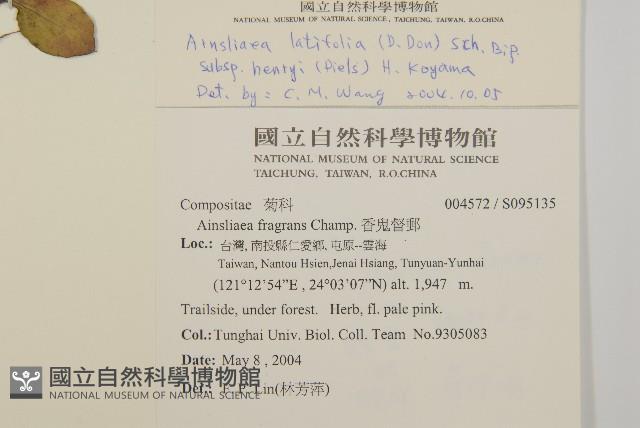 國立自然科學博物館
NATIONAL MUSEUM OF NATURAL SCIENCE, TAICHUNG, TAIWAN, R.O.CHINA
Ainsliaea latifolia (D. Don) Sch. Bip.
subsp. henryi (Diels) H. Koyama
Det. by: C. M. Wang 2004.10.05
國立自然科學博物館
NATIONAL MUSEUM OF NATURAL SCIENCE
TAICHUNG, TAIWAN, R.O.CHINA
Compositae 菊科 004572 / S095135
Ainsliaea fragrans Champ. 香鬼督郵
Loc.: 台灣, 南投縣仁愛鄉, 屯原--雲海
Taiwan, Nantou Hsien,Jenai Hsiang, Tunyuan-Yunhai
(121°12'54"E , 24°03'07"N) alt. 1,947 m.
Trailside, under forest. Herb, fl. pale pink.
Col.: Tunghai Univ. Biol. Coll. Team No.9305083
Date: May 8 , 2004
Det.: F. P. Lin(林芳萍)
國立自然科學博物館
NATIONAL MUSEUM OF NATURAL SCIENCE